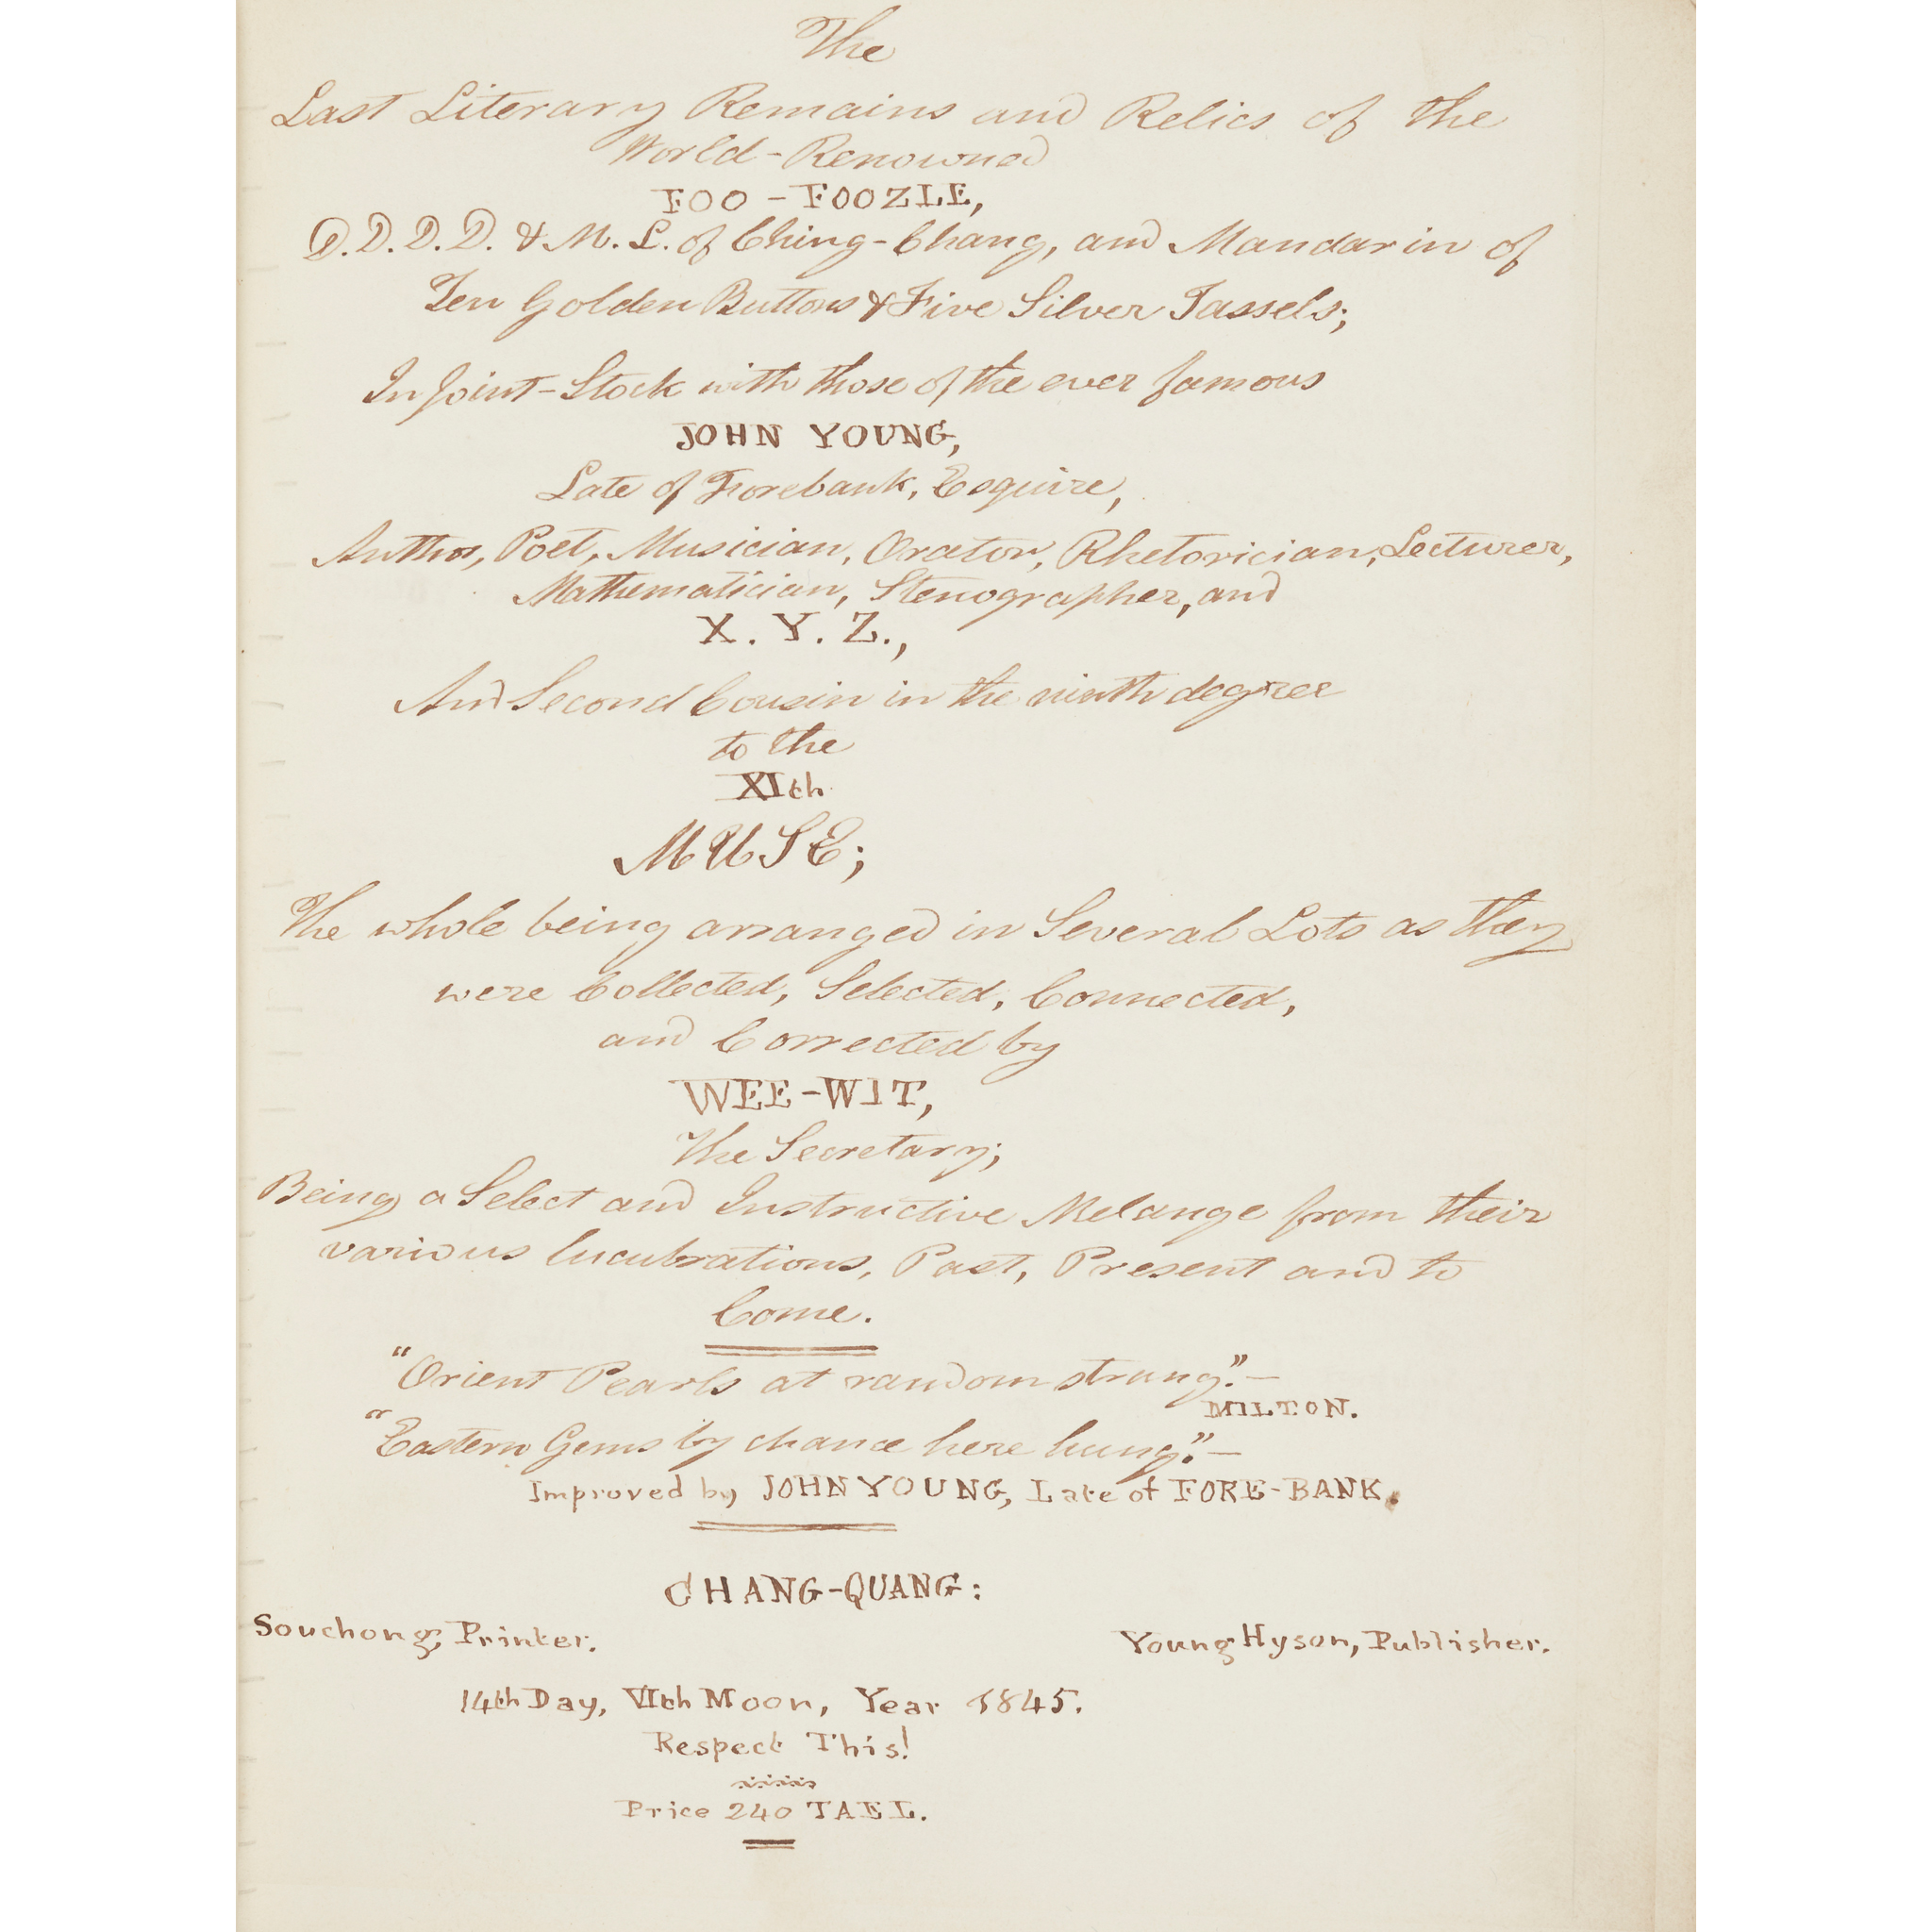 The
Last Literary Remains and Relics of the
World-Renowned
FOO-FOOZLE,
D.D.D.D. & M.L. of Ching-Chang, and Mandarin of
Ten Golden Buttons & Five Silver Tassels;
In Joint-Stock with those of the ever famous
JOHN YOUNG,
Late of Forebank, Esquire,
Author, Poet, Musician, Orator, Rhetorician, Lecturer,
Mathematician, Stenographer, and
X. Y. Z.,
And Second Cousin in the ninth degree
to the
XIth
MUSE;
The whole being arranged in Several Lots as they
were Collected, Selected, Connected,
and Corrected by
WEE-WIT,
The Secretary;
Being a Select and Instructive Melange from their
various lucubrations, Past, Present and to
Come.
"Orient Pearls at random strung."—
MILTON.
"Eastern Gems by chance here hung."—
Improved by JOHN YOUNG, Late of FORE-BANK.
CHANG-QUANG:
Souchong, Printer. Young Hyson, Publisher.
14th Day, VIth Moon, Year 1845.
Respect This!
Price 240 TAEL.